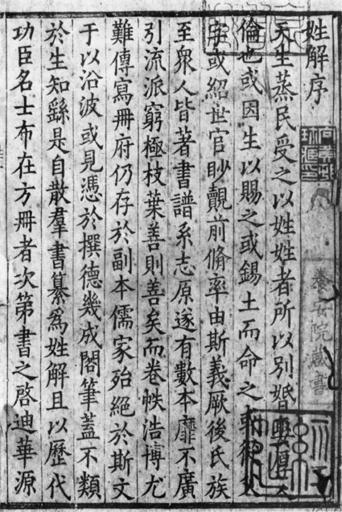 姓解序
天生蒸民受之以姓姓者所以別婚娶厚
倫也或因生以賜之或錫土而命之
字或紹世官眇覿前脩率由斯義厥後氏族
至衆人皆著書譜系志原遂有數本靡不廣
引流派窮極枝葉善則善矣而卷帙浩博尤
難傳寫冊府仍存於副本儒家殆絕於斯文
于以沿波或見憑於撰德幾成閣筆蓋不類
於生知繇是自散羣書纂爲姓解且以歷代
功臣名士布在方冊者次第書之啓迪華源
養安院藏書